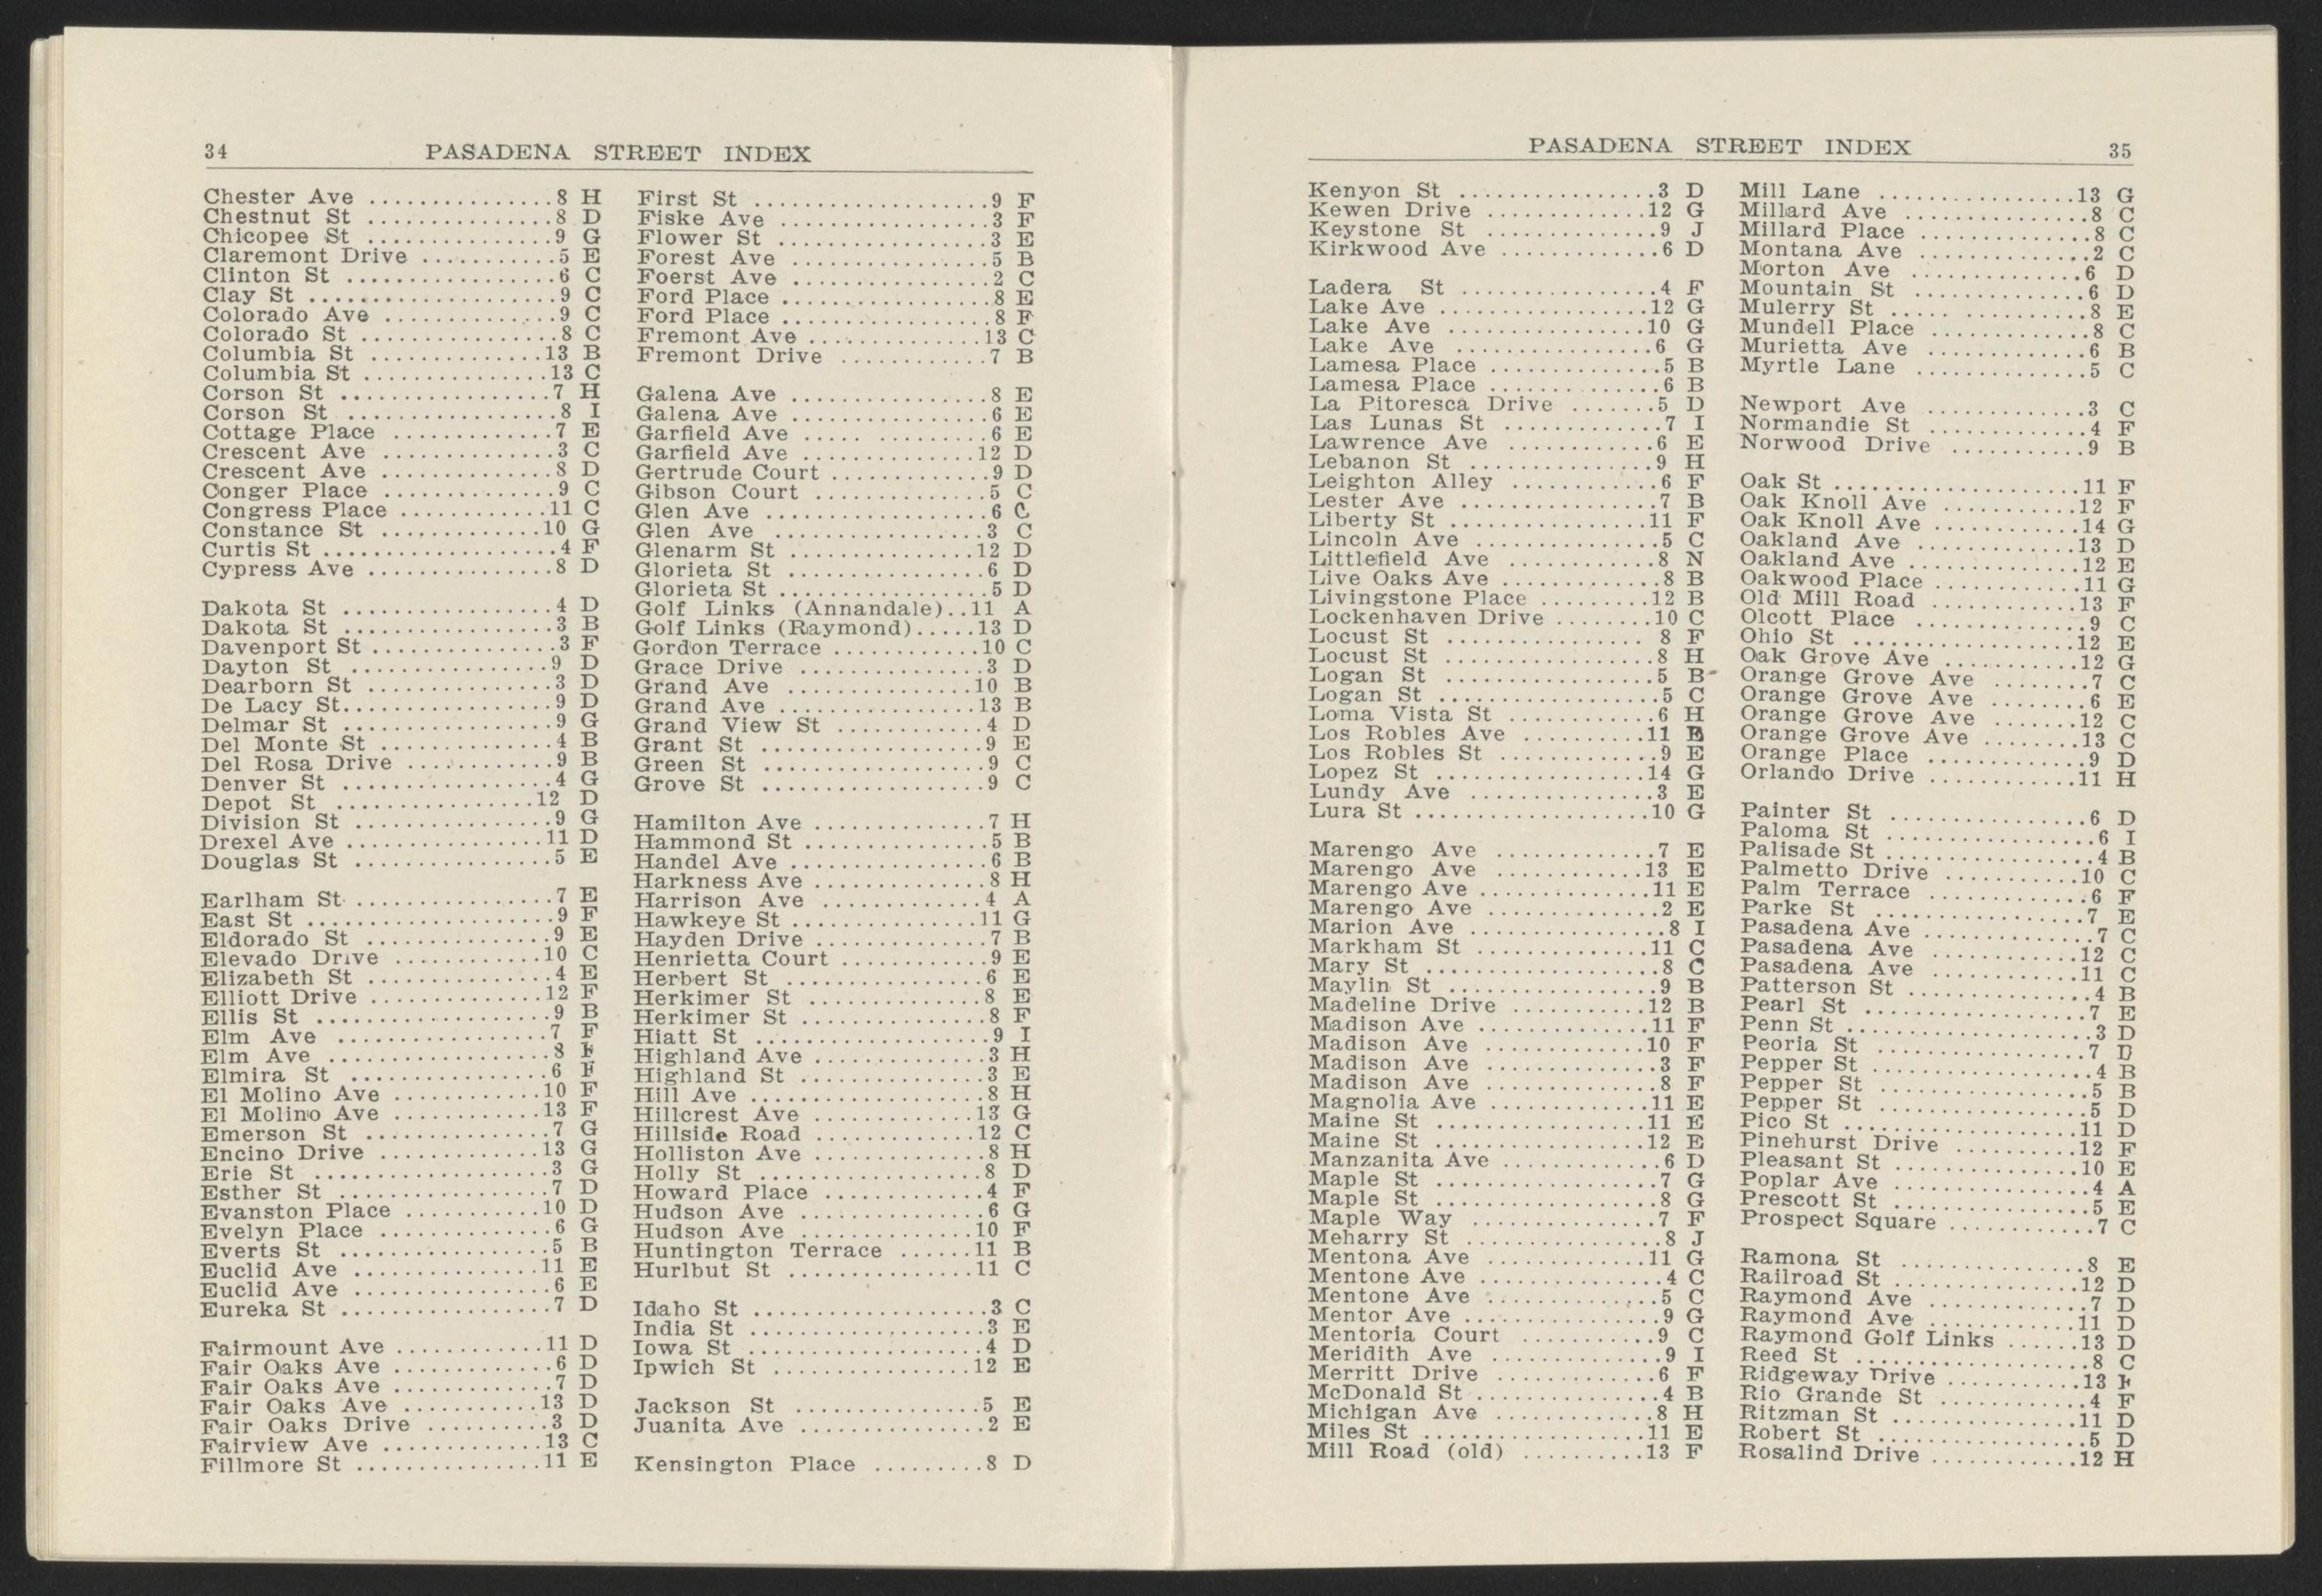 34 PASADENA STREET INDEX
Chester Ave ...............8 H
Chestnut St ...............8 D
Chicopee St ...............9 G
Claremont Drive ...........5 E
Clinton St .................6 C
Clay St ....................9 C
Colorado Ave ..............9 C
Colorado St ................8 C
Columbia St ..............13 B
Columbia St ...............13 C
Corson St .................7 H
Corson St .................8 I
Cottage Place .............7 E
Crescent Ave ..............3 C
Crescent Ave ..............8 D
Conger Place ..............9 C
Congress Place ............11 C
Constance St .............10 G
Curtis St ...................4 F
Cypress Ave ...............8 D
Dakota St .................4 D
Dakota St .................3 B
Davenport St ...............3 F
Dayton St ................9 D
Dearborn St ...............3 D
De Lacy St.................9 D
Delmar St .................9 G
Del Monte St ..............4 B
Del Rosa Drive ............9 B
Denver St .................4 G
Depot St ................12 D
Division St ................9 G
Drexel Ave ................11 D
Douglas St ................5 E
Earlham St ................7 E
East St ....................9 F
Eldorado St ...............9 E
Elevado Drive ............10 C
Elizabeth St ..............4 E
Elliott Drive ..............12 F
Ellis St ...................9 B
Elm Ave .................7 F
Elm Ave ..................8 F
Elmira St ................6 F
El Molino Ave ............10 F
El Molino Ave ............13 F
Emerson St ...............7 G
Encino Drive .............13 G
Erie St ...................3 G
Esther St .................7 D
Evanston Place ...........10 D
Evelyn Place ..............6 G
Everts St .................5 B
Euclid Ave ...............11 E
Euclid Ave ................6 E
Eureka St .................7 D
Fairmount Ave ............11 D
Fair Oaks Ave .............6 D
Fair Oaks Ave .............7 D
Fair Oaks Ave ............13 D
Fair Oaks Drive ..........3 D
Fairview Ave .............13 C
Fillmore St ...............11 E
First St ...................9 F
Fiske Ave .................3 F
Flower St .................3 E
Forest Ave ................5 B
Foerst Ave ................2 C
Ford Place .................8 E
Ford Place .................8 F
Fremont Ave ..............13 C
Fremont Drive ............7 B
Galena Ave ................8 E
Galena Ave ................6 E
Garfield Ave ..... .........6 E
Garfield Ave ..............12 D
Gertrude Court .............9 D
Gibson Court ..............5 C
Glen Ave ..................6 C
Glen Ave .................3 C
Glenarm St ...............12 D
Glorieta St ................6 D
Glorieta St .................5 D
Golf Links (Annandale)..11 A
Golf Links (Raymond).....13 D
Gordon Terrace ............10 C
Grace Drive ...............3 D
Grand Ave ...............10 B
Grand Ave ................13 B
Grand View St ............4 D
Grant St ..................9 E
Green St ..................9 C
Grove St ..................9 C
Hamilton Ave ..............7 H
Hammond St ...............5 B
Handel Ave ................6 B
Harkness Ave ..............8 H
Harrison Ave .............4 A
Hawkeye St ...............11 G
Hayden Drive ..............7 B
Henrietta Court ............9 E
Herbert St ................6 E
Herkimer St ..............8 E
Herkimer St ...............8 F
Hiatt St ...................9 I
Highland Ave ..............3 H
Highland St ...............3 E
Hill Ave ...................8 H
Hillcrest Ave .............13 G
Hillside Road .............12 C
Holliston Ave ..............8 H
Holly St ..................8 D
Howard Place .............4 F
Hudson Ave ...............6 G
Hudson Ave ..............10 F
Huntington Terrace ......11 B
Hurlbut St ...............11 C
Idaho St ...................3 C
India St ...................3 E
Iowa St ...................4 D
Ipwich St ................12 E
Jackson St ...............5 E
Juanita Ave ...............2 E
Kensington Place .........8 D
PASADENA STREET INDEX 35
Kenyon St ................3 D
Kewen Drive .............12 G
Keystone St ..............9 J
Kirkwood Ave .............6 D
Ladera St ................4 F
Lake Ave .................12 G
Lake Ave ................10 G
Lake Ave ................6 G
Lamesa Place ..............5 B
Lamesa Place ..............6 B
La Pitoresca Drive .......5 D
Las Lunas St .............7 I
Lawrence Ave .............6 E
Lebanon St ...............9 H
Leighton Alley ............6 F
Lester Ave ................7 B
Liberty St ................11 F
Lincoln Ave ...............5 C
Littlefield Ave ............8 N
Live Oaks Ave .............8 B
Livingstone Place .........12 B
Lockenhaven Drive ........10 C
Locust St ................ 8 F
Locust St .................8 H
Logan St .................5 B
Logan St ..................5 C
Loma Vista St ............6 H
Los Robles Ave ..........11 E
Los Robles St .............9 E
Lopez St .................14 G
Lundy Ave ...............3 E
Lura St ...................10 G
Marengo Ave .............7 E
Marengo Ave ............13 E
Marengo Ave .............11 E
Marengo Ave ..............2 E
Marion Ave ................8 I
Markham St ..............11 C
Mary St ...................8 C
Maylin St ................9 B
Madeline Drive ...........12 B
Madison Ave .............11 F
Madison Ave ............10 F
Madison Ave .............3 F
Madison Ave .............8 F
Magnolia Ave ............11 E
Maine St ................11 E
Maine St ................12 E
Manzanita Ave ............6 D
Maple St .................7 G
Maple St .................8 G
Maple Way ..............7 F
Meharry St ................8 J
Mentona Ave .............11 G
Mentone Ave ..............4 C
Mentone Ave .............5 C
Mentor Ave ................9 G
Mentoria Court ..........9 C
Meridith Ave .............9 I
Merritt Drive .............6 F
McDonald St ..............4 B
Michigan Ave .............8 H
Miles St .................11 E
Mill Road (old) ..........13 F
Mill Lane ................13 G
Millard Ave ..............8 C
Millard Place .............8 C
Montana Ave .............2 C
Morton Ave .............6 D
Mountain St .............6 D
Mulerry St ..... .........8 E
Mundell Place ............8 C
Murietta Ave ............6 B
Myrtle Lane .............5 C
Newport Ave ............3 C
Normandie St ............4 F
Norwood Drive ..........9 B
Oak St ....................11 F
Oak Knoll Ave ...........12 F
Oak Knoll Ave ............14 G
Oakland Ave .............13 D
Oakland Ave ..............12 E
Oakwood Place ............11 G
Old Mill Road ............13 F
Olcott Place .............9 C
Ohio St ..................12 E
Oak Grove Ave ...........12 G
Orange Grove Ave ........7 C
Orange Grove Ave .......6 E
Orange Grove Ave .......12 C
Orange Grove Ave ........13 C
Orange Place .............9 D
Orlando Drive ............11 H
Painter St ................6 D
Paloma St .................6 I
Palisade St .................4 B
Palmetto Drive ...........10 C
Palm Terrace .............6 F
Parke St .................7 E
Pasadena Ave ..............7 C
Pasadena Ave ............12 C
Pasadena Ave ............11 C
Patterson St ...............4 B
Pearl St ..................7 E
Penn St ....................3 D
Peoria St .................7 D
Pepper St ..................4 B
Pepper St .................5 B
Pepper St .................5 D
Pico St ...................11 D
Pinehurst Drive ..........12 F
Pleasant St ...............10 E
Poplar Ave ................4 A
Prescott St ................5 E
Prospect Square ............7 C
Ramona St ...............8 E
Railroad St ...............12 D
Raymond Ave .............7 D
Raymond Ave ............11 D
Raymond Golf Links ......13 D
Reed St ...................8 C
Ridgeway Drive ...........13 F
Rio Grande St ............4 F
Ritzman St ...............11 D
Robert St .................5 D
Rosalind Drive ............12 H